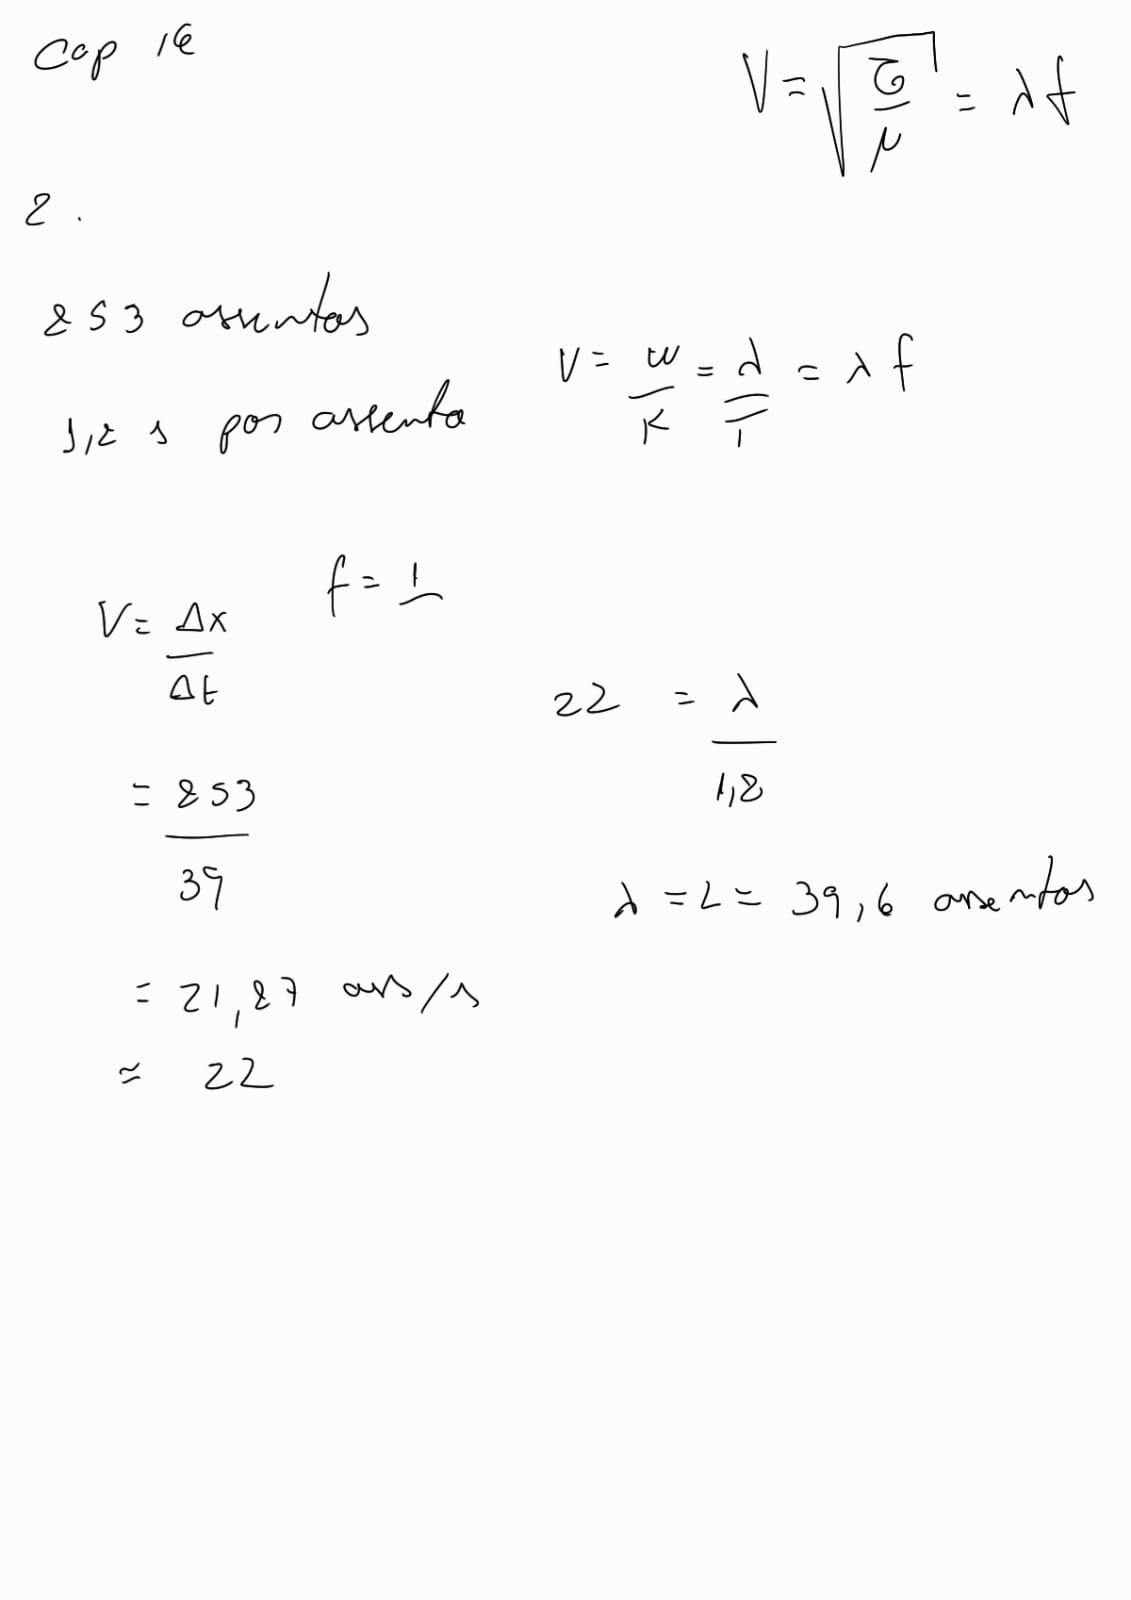 Cap 16
V = √(τ/μ) = λf
2.
853 assentos
1,8 s por assento
V = w/K = λ/T = λf
V = Δx/Δt
f = 1
= 853/39
= 21,87 ass/s
≈ 22
22 = λ/1,8
λ = L = 39,6 assentos